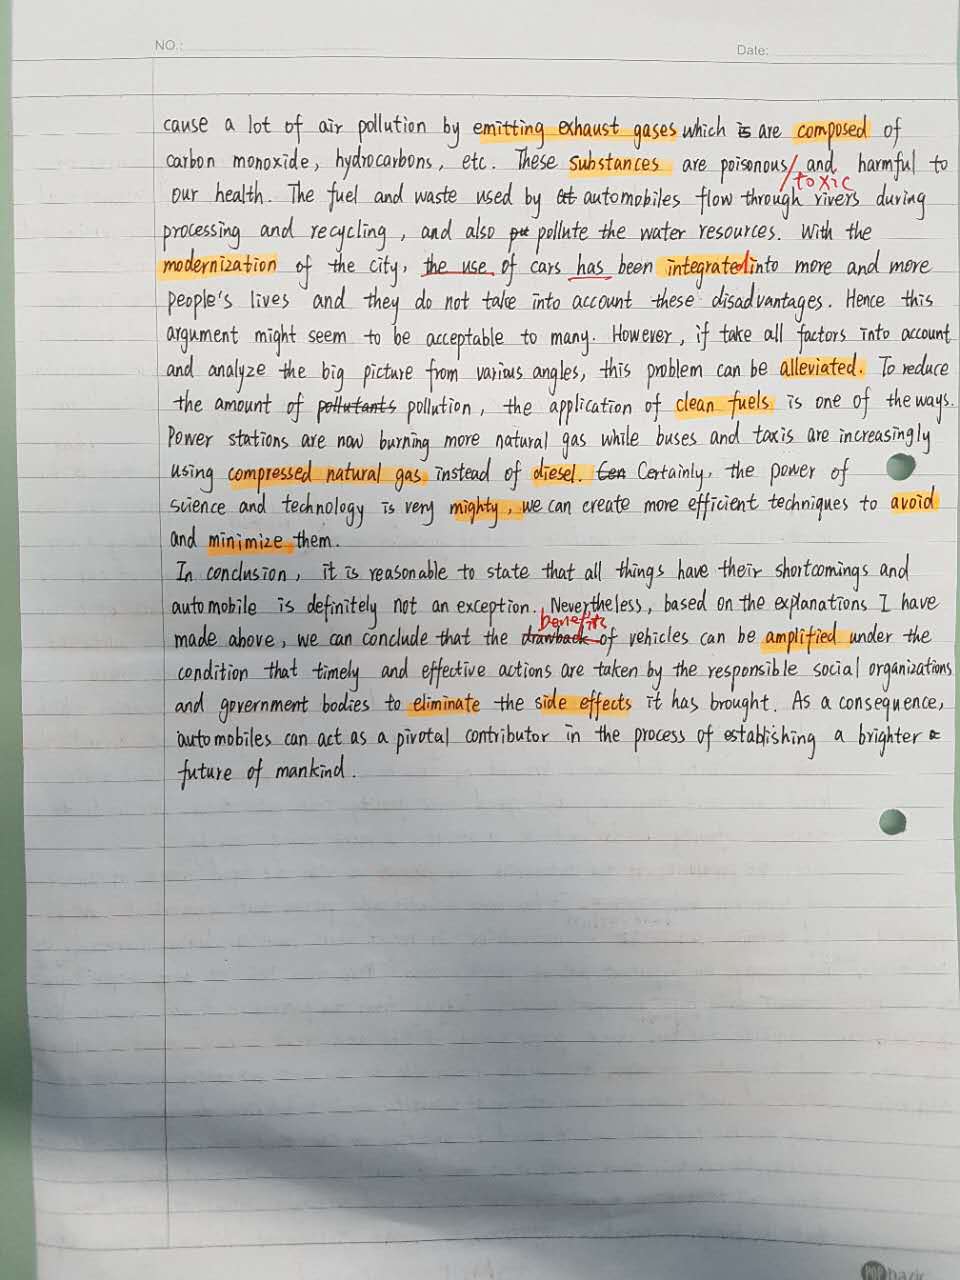 NO.:
Date:
cause a lot of air pollution by emitting exhaust gases which is are composed of
carbon monoxide, hydrocarbons, etc. These substances are poisonous/ and harmful to
toxic
our health. The fuel and waste used by automobiles flow through rivers during
processing and recycling, and also pollute the water resources. With the
modernization of the city, the use of cars has been integrated into more and more
people's lives and they do not take into account these disadvantages. Hence this
argument might seem to be acceptable to many. However, if take all factors into account
and analyze the big picture from various angles, this problem can be alleviated. To reduce
the amount of pollutants pollution, the application of clean fuels is one of the ways.
Power stations are now burning more natural gas while buses and taxis are increasingly
using compressed natural gas instead of diesel. Cen Certainly, the power of
science and technology is very mighty, we can create more efficient techniques to avoid
and minimize them.
In conclusion, it is reasonable to state that all things have their shortcomings and
automobile is definitely not an exception. Nevertheless, based on the explanations I have
benefits
made above, we can conclude that the drawback of vehicles can be amplified under the
condition that timely and effective actions are taken by the responsible social organizations
and government bodies to eliminate the side effects it has brought. As a consequence,
automobiles can act as a pivotal contributor in the process of establishing a brighter
future of mankind.
POP